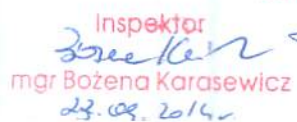 Inspektor
mgr Bożena Karasewicz
23.09.2014r.